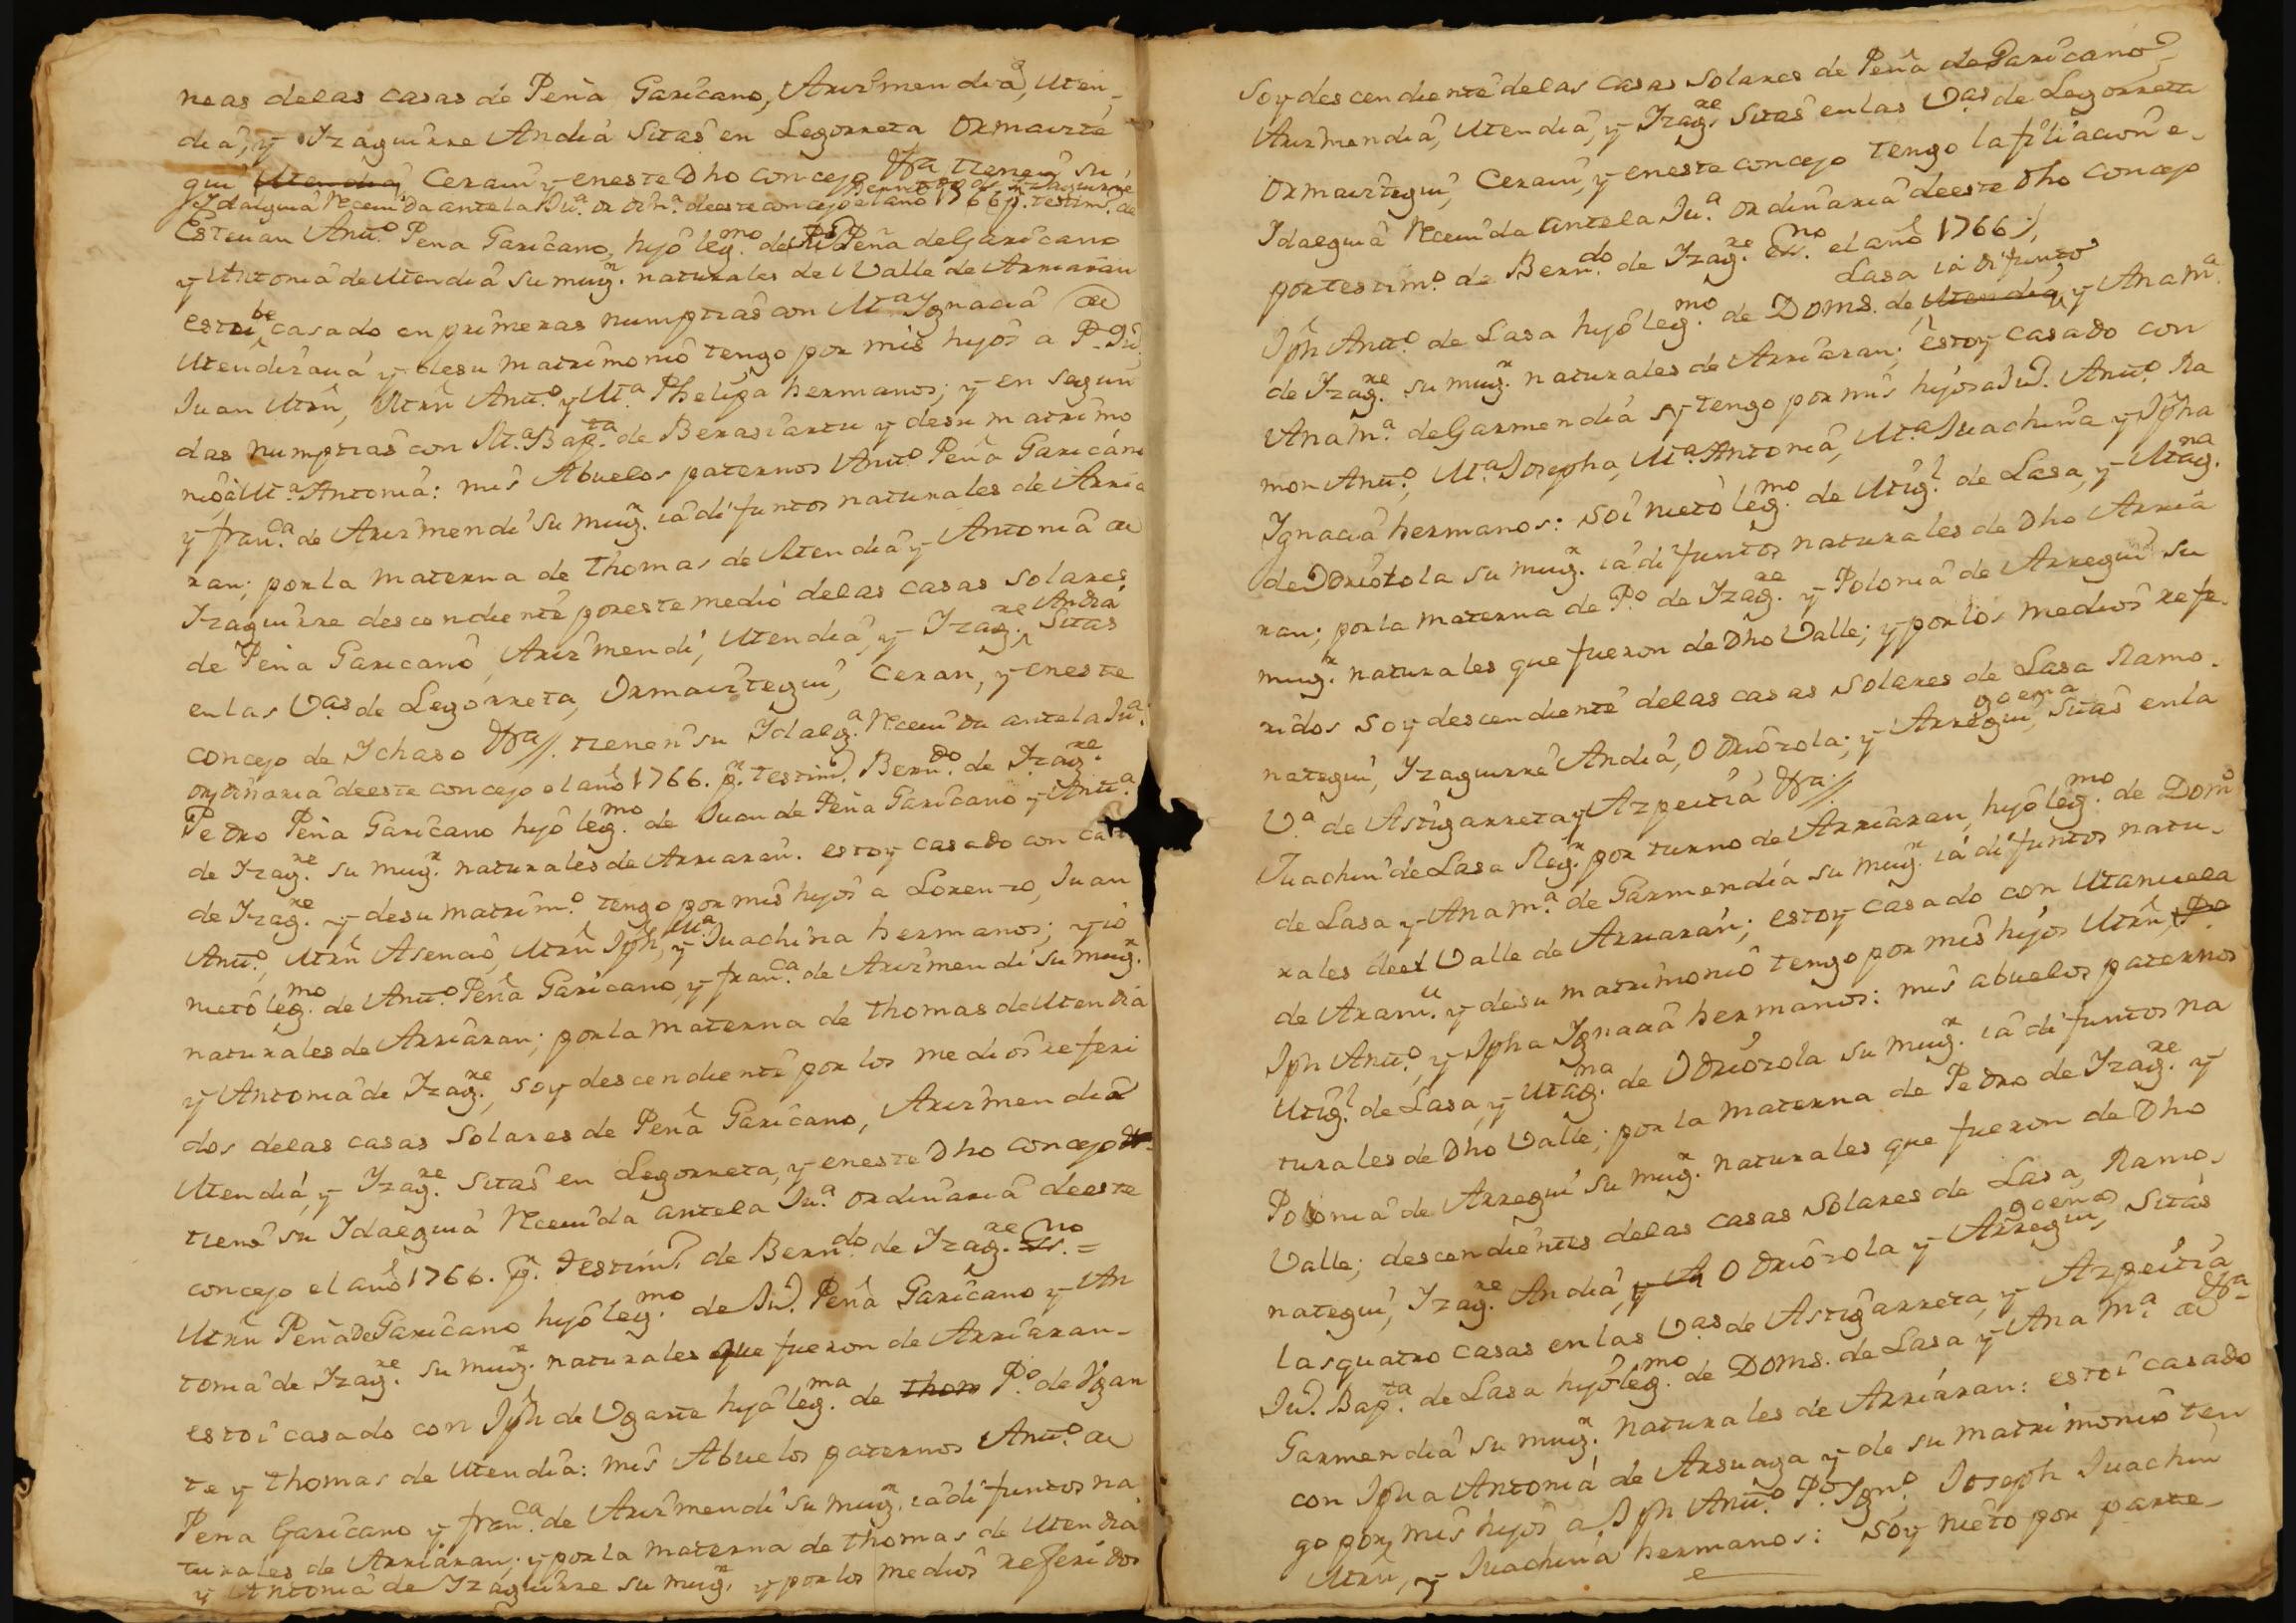 neas delas casas de Peña Garicano, Arizmendia, Uten-
dia, y Yzaguirre Andia Sitas en Legorreta Ormaizte
gui Utendia, Cerain y eneste Dho concejo Vra tienen su
Ydalguia Receuida antela Ju.ª Ordin.ª deeste concejo elano 1766 p.r testim.º de
Bernardo de Yzaguirre
Esteuan Antt.º Pena Garicano, hijo leg.mo de P.º Peña deGaricano
y Antonia de Utendia su mug.r naturales del Valle de Arriaran
estube casado en primeras numptias con M.ª Ygnacia de
Utendizaual y desu matrimonio tengo por mis hijos a P. Ju.
Juan Mrñ, Mrñ Antt.º y M.ª Phelipa hermanos; y en Segun
das numptias con M.ª Bap.ta de Berasiartu y desu matrimo
nio, a M.ª Antonia: mis Abuelos paternos Antt.º Peña Garicano
y fran.ca de Arizmendi su mug.r ia difuntos naturales de Arria
ran; porla materna de thomas de Utendia y Antonia de
Yzaguirre descendiente poreste medio delas casas solares
de Peña Garicano, Arizmendi, Utendia, y Yzag.re Andia Sitas
enlas V.as de Legorreta, Ormaiztegui, Ceran, y eneste
concejo de Ychaso Vra//. tienen su Ydalg.ª Receuida antela Ju.ª
ordinaria deeste concejo el año 1766. p.r testim.º Bern.do de Yzag.re
Pedro Peña Garicano hijo leg.mo de Juan de Peña Garicano y Antt.ª
de Yzag.re su mug.r naturales de Arriaran. estoy casado con Cat
de Yzag.re y desu matrim.º tengo por mis hijos a Lorenzo, Juan
Antt.º, Mrñ Asencio, Mrñ Jph, y M.ª Juachina hermanos; y io
nieto leg.mo de Antt.º Peña Garicano, y fran.ca de Arizmendi su mug.r
naturales de Arriaran; porla materna de thomas deUtendia
y Antonia de Yzag.re, soy descendiente por los medios referi
dos delas casas Solares de Peña Garicano, Arizmendia
Utendia, y Yzag.re Sitas en Legorreta, y eneste Dho concejo
tiene su Ydalguia Receuida antela Ju.ª ordinaria deeste
concejo el año 1766. p.r testim.º de Bern.do de Yzag.re Ess.no =
Mrñ PeñadeGaricano hijo leg.mo de Ju.º Peña Garicano y An
tonia de Yzag.re su mug.r naturales que fueron de Arriaran-
estoi casado con Jph de Ugarte hija leg.ma de thom P.º de Vgar
te y thomas de Utendia: mis Abuelos paternos Antt.º de
Pena Garicano y fran.ca de Arizmendi su mug.r ia difuntos na
turales de Arriaran; y porla materna de thomas de Utendia
y Antonia de Yzaguirre su mug.r y por los medios referidos
Soy descendiente delas casas Solares de Peña de Garicano
Arizmendia, Utendia, y Yzag.re Sitas enlas V.as de Legorreta
Ormaiztegui, Cerain, y eneste concejo tengo lafiliacion e
Ydalguia Receuida antela Ju.ª ordinaria deeste Dho concejo
portestim.º de Bern.do de Yzag.re Ess.no el año 1766 //
Lasa ia difunto
Jph Antt.º de Lasa hijo leg.mo de Doms. de Utendia, y Ana M.ª
de Yzag.re su mug.r naturales de Arriaran; estoy casado con
Ana m.ª deGarmendia y tengo por mis hijos a Ju.º Antt.º Ra
mon Antt.º, M.ª Josepha, M.ª Antonia, M.ª Juachina y Jpha
Ygnacia hermanos: soi nieto leg.mo de Mig.l de Lasa, y Mag.na
de Odriotola su mug.r ia difuntos naturales de Dho Arria
ran; porla materna de P.º de Yzag.re y Polonia de Arregui su
mug.r naturales que fueron de Dho Valle; y por los medios refe-
ridos soy descendiente delas casas solares de Lasa Ramo-
nategui, Yzaguirre Andia, Odriozola; y Arreguigoena Sitas enla
V.ª de Astigarreta y Azpeitia Vra//.
Juachin de Lasa Reg.r por turno de Arriaran, hijo leg.mo de Dom
de Lasa y Ana m.ª de Garmendia su mug.r ia difuntos natu-
rales deel Valle de Arriaran; estoy casado con Manuela
de Aram.u y desu matrimonio tengo por mis hijos Mrñ, Po
Jph Antt.º, y Jpha Ygnacia hermanos: mis abuelos paternos
Mig.l de Lasa, y Mag.na de Odriozola su mug.r ia difuntos na
turales de Dho Valle; por la materna de Pedro de Yzag.re y
Polonia de Arregui su mug.r naturales que fueron de Dho
Valle; descendientes delas casas Solares de Lasa, Ramo-
nategui, Yzag.re Andia, y A Odriozola y Arreguigoena Sitas
las quatro casas enlas V.as de Astigarreta, y Azpeitia Vra
Ju.º Bap.ta de Lasa hijo leg.mo de Doms. de Lasa y Ana M.ª de
Garmendia su mug.r naturales de Arriaran: estoi casado
con Jpha Antonia de Arsuaga y de su matrimonio ten
go por mis hijos a Jph Antt.º P.º Ygn.º, Joseph Juachin
Mrñ, y Juachina hermanos: Soy nieto por parte-